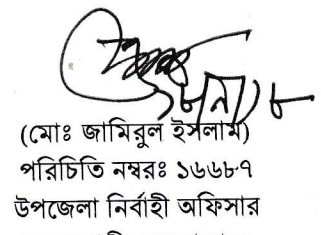 (মোঃ জামিরুল ইসলাম)
পরিচিতি নম্বরঃ ১৬৬৮৭
উপজেলা নির্বাহী অফিসার